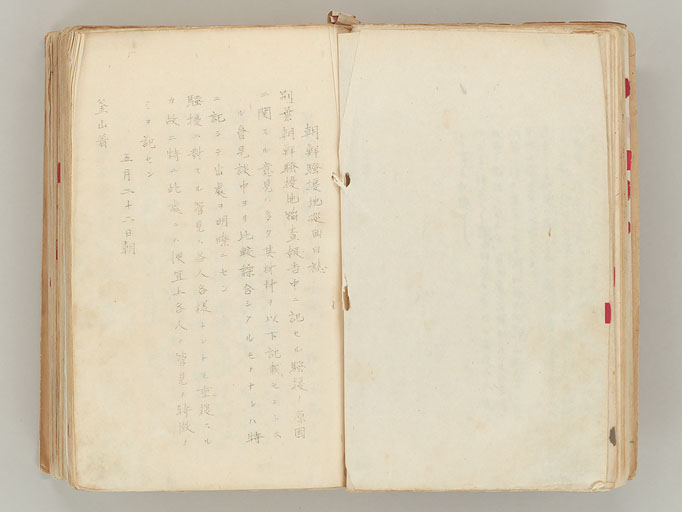 朝鮮騒擾地巡回日誌
別葉朝鮮騒擾地踏査報告中ニ記セル騒擾ノ原因
ニ関スル意見ハ多ク其材料ヲ以下記載セントス
ル會見談中ヨリ比較綜合シアルモノナレハ特
ニ記シテ出處ヲ明瞭ニセン
騒擾ニ対スル管見ハ各人各様ナントモ重複スル
カ故ニ特ニ此處ニハ便宜上各人ノ管見ノ特徴ノ
ミヲ記セン
五月二十二日朝
釜山着